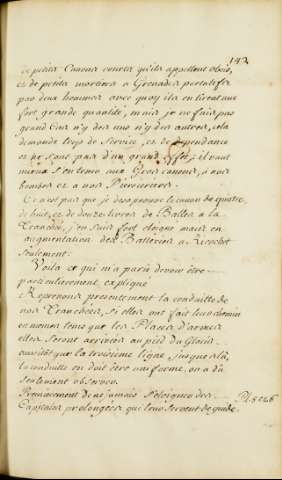 142
de petits Canons courts qu'ils appellent obus,
et de petits mortiers a Grenades portatifs
par deux hommes avec quoy ils en tirent une
fort grande quantité, mais je ne fais pas
grand cas n'y des uns n'y des autres, cela
demande trop de service, et de dependance
et ne sont pas d'un grand effet; il vaut
mieux s'en tenir aux Gros canons, a nos
bombes et a nos Pierrieres.
Ce n'est pas que je desaprouve le canon de quatre,
de huit, et de douze livres de Balles a la
Tranchée, j'en suis fort eloigné mais en
augmentation des Batteries a Ricochet
seulement.
Voila ce qui m'a paru devoir être
particulierement expliqué
Reprenons presentement la conduitte de
nos Tranchées, si elles ont fait leur chemin
en mesme tems que les Places d'armes
elles seront arrivées au pied du Glacis
aussitôt que la troisieme ligne, jusques là,
la conduitte en doit être uniforme, on a dû
seulement observer.
Premierement de ne jamais s'eloigner des
Capitales prolongées qui leur servent de guide. Pl.